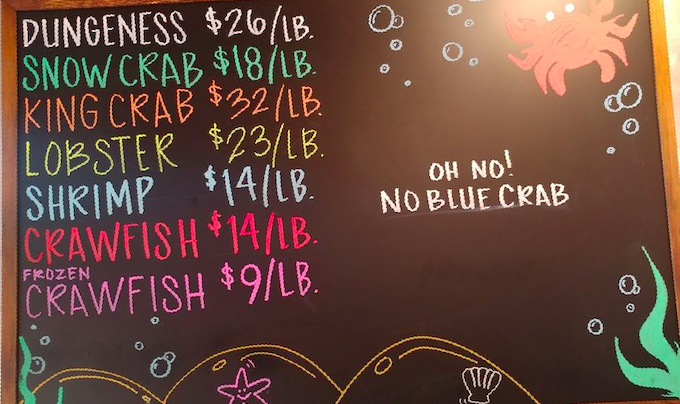 DUNGENESS $26/LB.
SNOW CRAB $18/LB.
KING CRAB $32/LB.
LOBSTER $23/LB.
SHRIMP $14/LB.
CRAWFISH $14/LB.
FROZEN
CRAWFISH $9/LB.
OH NO!
NO BLUE CRAB